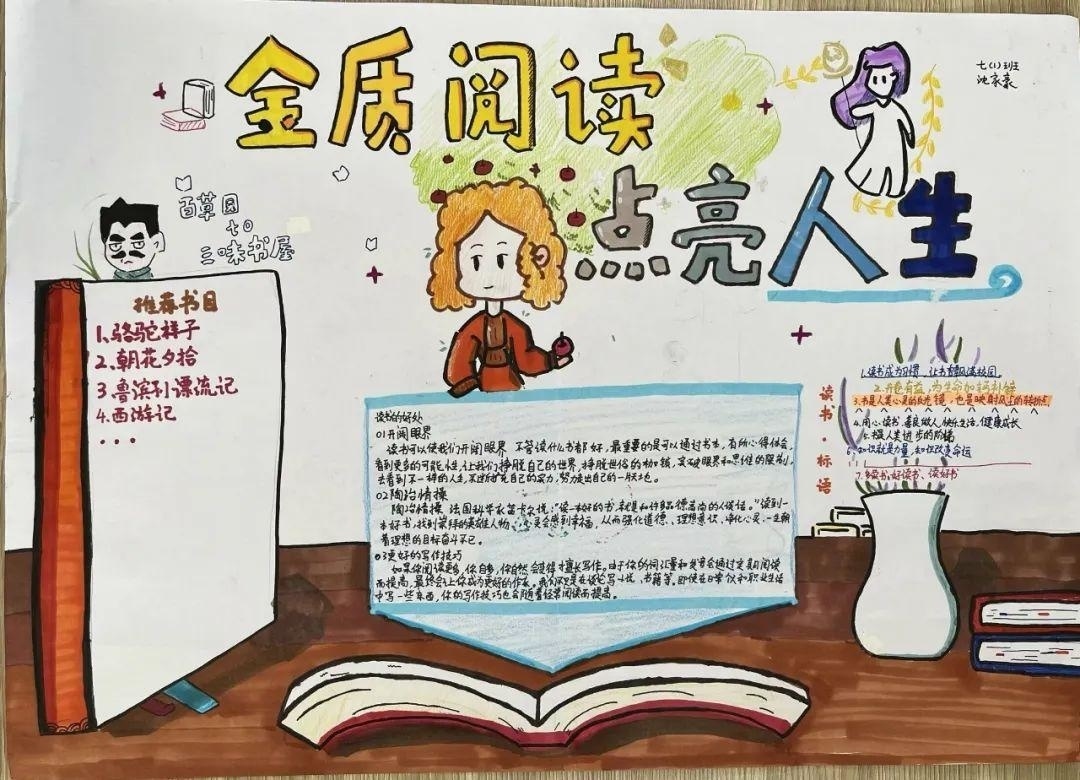 金质阅读
点亮人生
七(1)班
沈家豪
百草园
to
三味书屋
推荐书目
1、骆驼祥子
2、朝花夕拾
3、鲁滨孙漂流记
4、西游记
...
读书的好处
01开阔眼界
读书可以使我们开阔眼界,不管读什么书都好,最重要的是可以通过书本,有所心得体会,
看到更多的可能性,让我们挣脱自己的世界,挣脱世俗的枷锁,突破眼界和思维的限制,
去看到不一样的人生,不断扩充自己的实力,努力读出自己的一片天地。
02陶冶情操
陶冶情操 法国科学家笛卡尔说:“读一本好的书,就是和许多品德高尚的人谈话。”读到一
本好书,找到崇拜的英雄人物,心灵会感到幸福,从而强化道德、理想意识,净化心灵,一生朝
着理想的目标奋斗不已。
03更好的写作技巧
如果你阅读更多,你自
而提高,最终会让你成为更好的作家。我们不只是在谈论写小说、书籍等,即使在日常 和职业生活
中写一些东西,你的写作技巧也会随着经常阅读而提高。
读书·标语
1.读书成为习惯,让书香飘满校园。
2.开卷有益,为生命加
3.书是人类心灵的
4.用心读书,善良做人,快乐生活,健康成长
5.书是人类进步的阶梯
6.知识就是力量,知识改变命运
7.多读书、好读书、读好书